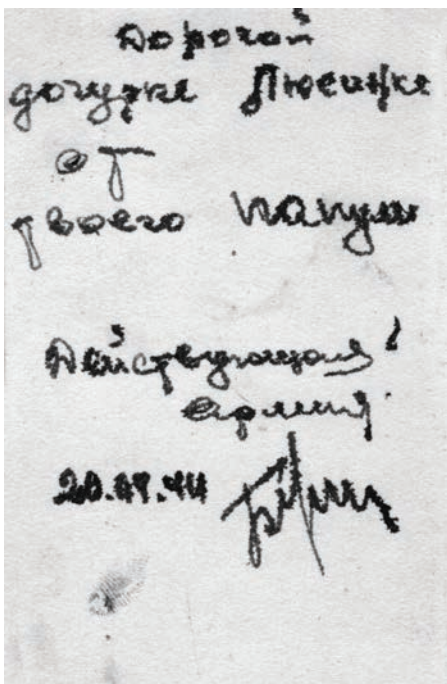 Дорогой
дочурке Люсичке
от
твоего папули
Действующая
армия